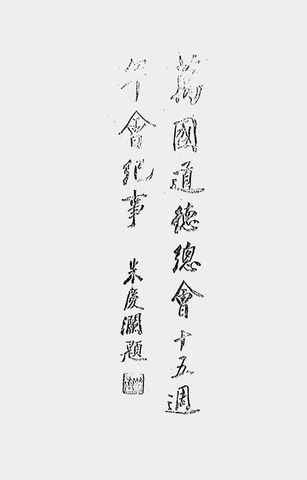 萬國道德總會十五週
年會紀事
朱慶瀾題